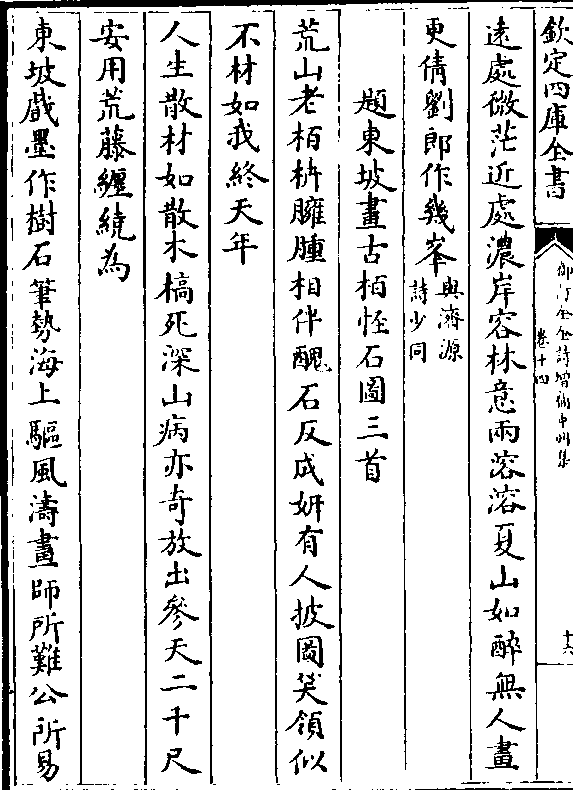 欽定四庫全書
御訂全金詩增補中州集
卷十四
十六
遠處微茫近處濃岸容林意雨溶溶夏山如醉無人畫
更倩劉郎作幾峯與濟源詩少同
題東坡畫古栢怪石圖三首
荒山老栢枿臃腫相伴醜石反成妍有人披圖笑領似
不材如我終天年
人生散材如散木槁死深山病亦奇放出參天二千尺
安用荒藤纏繞為
東坡戲墨作樹石筆勢海上驅風濤畫師所難公所易